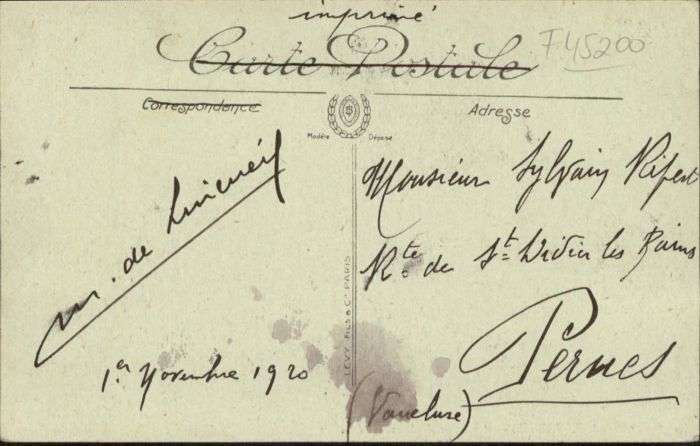 imprimé
F45200
Carte Postale
Correspondance
Adresse
Modèle Déposé
Monsieur Sylvain Ripert
Rte de St Didier les Bains
Pernes
(Vaucluse)
M. de
1er Novembre 1920
LEVY FILS & Cie PARIS